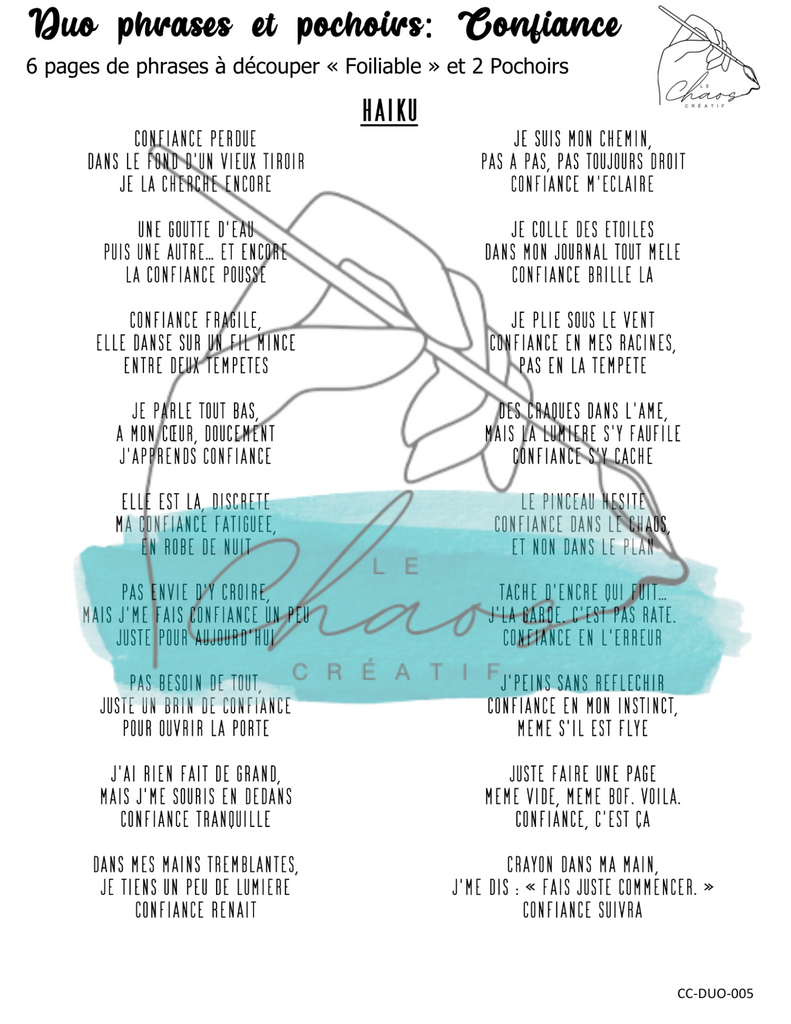 Duo phrases et pochoirs: Confiance
6 pages de phrases à découper « Foiliable » et 2 Pochoirs
LE
Chaos
CRÉATIF
HAIKU
CONFIANCE PERDUE
DANS LE FOND D'UN VIEUX TIROIR
JE LA CHERCHE ENCORE
UNE GOUTTE D'EAU
PUIS UNE AUTRE... ET ENCORE
LA CONFIANCE POUSSE
CONFIANCE FRAGILE,
ELLE DANSE SUR UN FIL MINCE
ENTRE DEUX TEMPETES
JE PARLE TOUT BAS,
A MON CŒUR, DOUCEMENT
J'APPRENDS CONFIANCE
ELLE EST LA, DISCRETE
MA CONFIANCE FATIGUEE,
EN ROBE DE NUIT
PAS ENVIE D'Y CROIRE,
MAIS J'ME FAIS CONFIANCE UN PEU
JUSTE POUR AUJOURD'HUI
PAS BESOIN DE TOUT,
JUSTE UN BRIN DE CONFIANCE
POUR OUVRIR LA PORTE
J'AI RIEN FAIT DE GRAND,
MAIS J'ME SOURIS EN DEDANS
CONFIANCE TRANQUILLE
DANS MES MAINS TREMBLANTES,
JE TIENS UN PEU DE LUMIERE
CONFIANCE RENAIT
JE SUIS MON CHEMIN,
PAS A PAS, PAS TOUJOURS DROIT
CONFIANCE M'ECLAIRE
JE COLLE DES ETOILES
DANS MON JOURNAL TOUT MELE
CONFIANCE BRILLE LA
JE PLIE SOUS LE VENT
CONFIANCE EN MES RACINES,
PAS EN LA TEMPETE
DES CRAQUES DANS L'AME,
MAIS LA LUMIERE S'Y FAUFILE
CONFIANCE S'Y CACHE
LE PINCEAU HESITE
CONFIANCE DANS LE CHAOS,
ET NON DANS LE PLAN
TACHE D'ENCRE QUI FUIT...
J'LA GARDE. C'EST PAS RATE.
CONFIANCE EN L'ERREUR
J'PEINS SANS REFLECHIR
CONFIANCE EN MON INSTINCT,
MEME S'IL EST FLYE
JUSTE FAIRE UNE PAGE
MEME VIDE, MEME BOF. VOILA.
CONFIANCE, C'EST ÇA
CRAYON DANS MA MAIN,
J'ME DIS : « FAIS JUSTE COMMENCER. »
CONFIANCE SUIVRA
LE
Chaos
CRÉATIF
CC-DUO-005